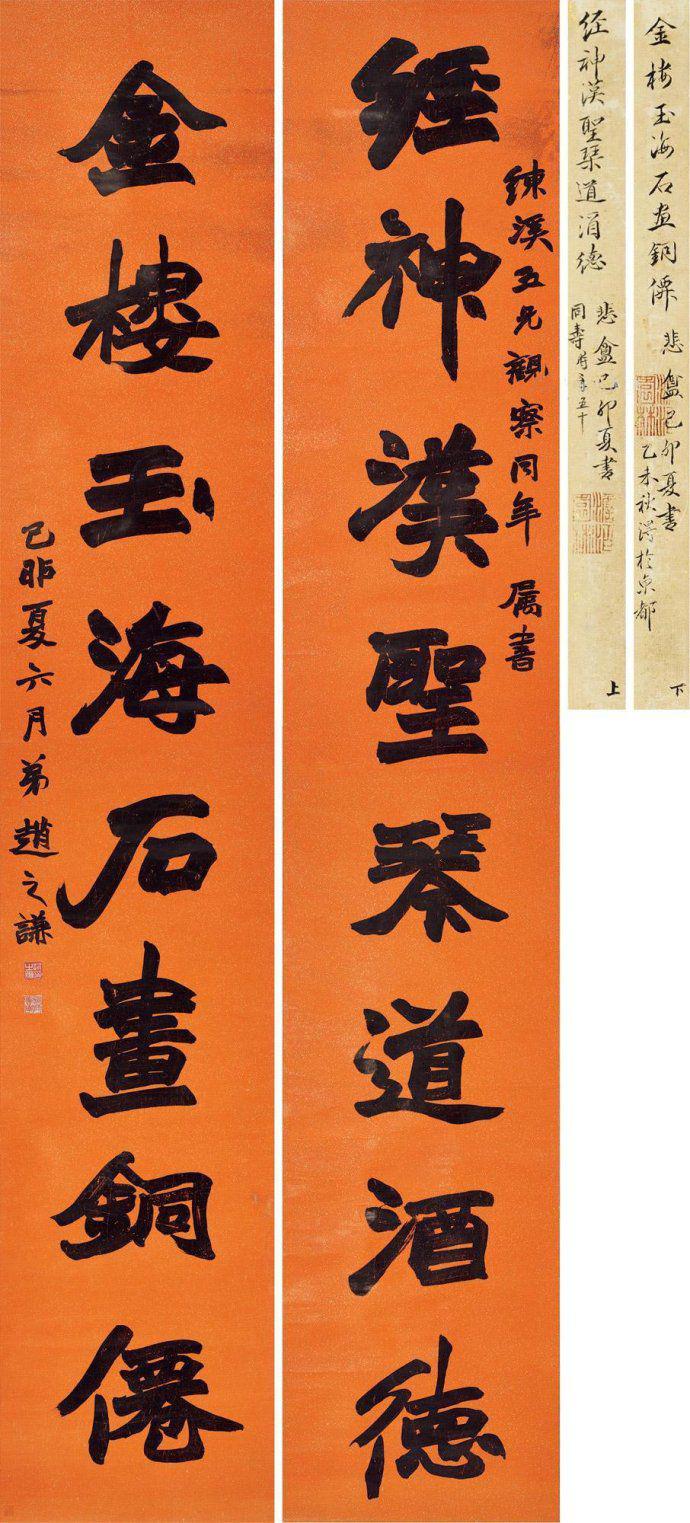 經神漢聖琴道酒德
鍊溪五兄觀察同年 属書
金樓玉海石畫銅僊
己卯夏六月弟趙之謙
经神漢聖琹道酒德
悲盦己卯夏書
同壽時年五十
上
金楼玉海石画銅僊
悲盦己卯夏書
乙未秋得於京都
下